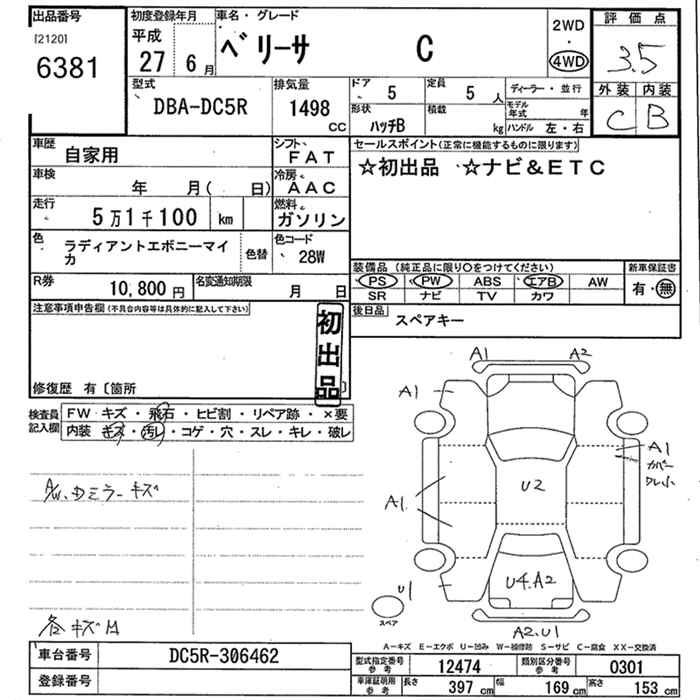 出品番号
[2120]
6381
初度登録年月
平成
27 6月
車名・グレード
ベリーサ C
2WD
・
4WD
評価点
3.5
外装 内装
C B
型式
DBA-DC5R
排気量
1498
CC
ドア 5
定員 5 人
形状
ハッチB
積載
kg
ディーラー・並行
モデル年式 年
ハンドル 左・右
車歴
自家用
シフト
FAT
車検
年 月( 日)
冷房
AAC
走行
5万1千100 km
燃料
ガソリン
色
ラディアントエボニーマイカ
色替
色コード
28W
R券
10,800円
名変通知期限
月 日
セールスポイント(正常に機能するものに限ります)
☆初出品 ☆ナビ&ETC
装備品(純正品に限り〇をつけてください)
PS PW ABS エアB AW
SR ナビ TV カワ
新車保証書
有・無
後日品
スペアキー
注意事項申告欄(不具合内容等は具体的に記入して下さい)
初出品
修復歴 有〔箇所 〕
検査員記入欄
FW キズ・飛石・ヒビ割・リペア跡・×要
内装 キズ・汚レ・コゲ・穴・スレ・キレ・破レ
A/W、Dミラーキズ
各キズ凹
A1 A2
A1
A1
カバー
ワレ小
U2
A1
U1
U4.A2
スペア
A2.U1
A-キズ E-エクボ U-凹み W-補修跡 S-サビ C-腐食 XX-交換済
車台番号
DC5R-306462
登録番号
型式指定番号
参考
12474
類別区分番号
参考
0301
車庫証明用
参考
長さ 397 cm
幅 169 cm
高さ 153 cm